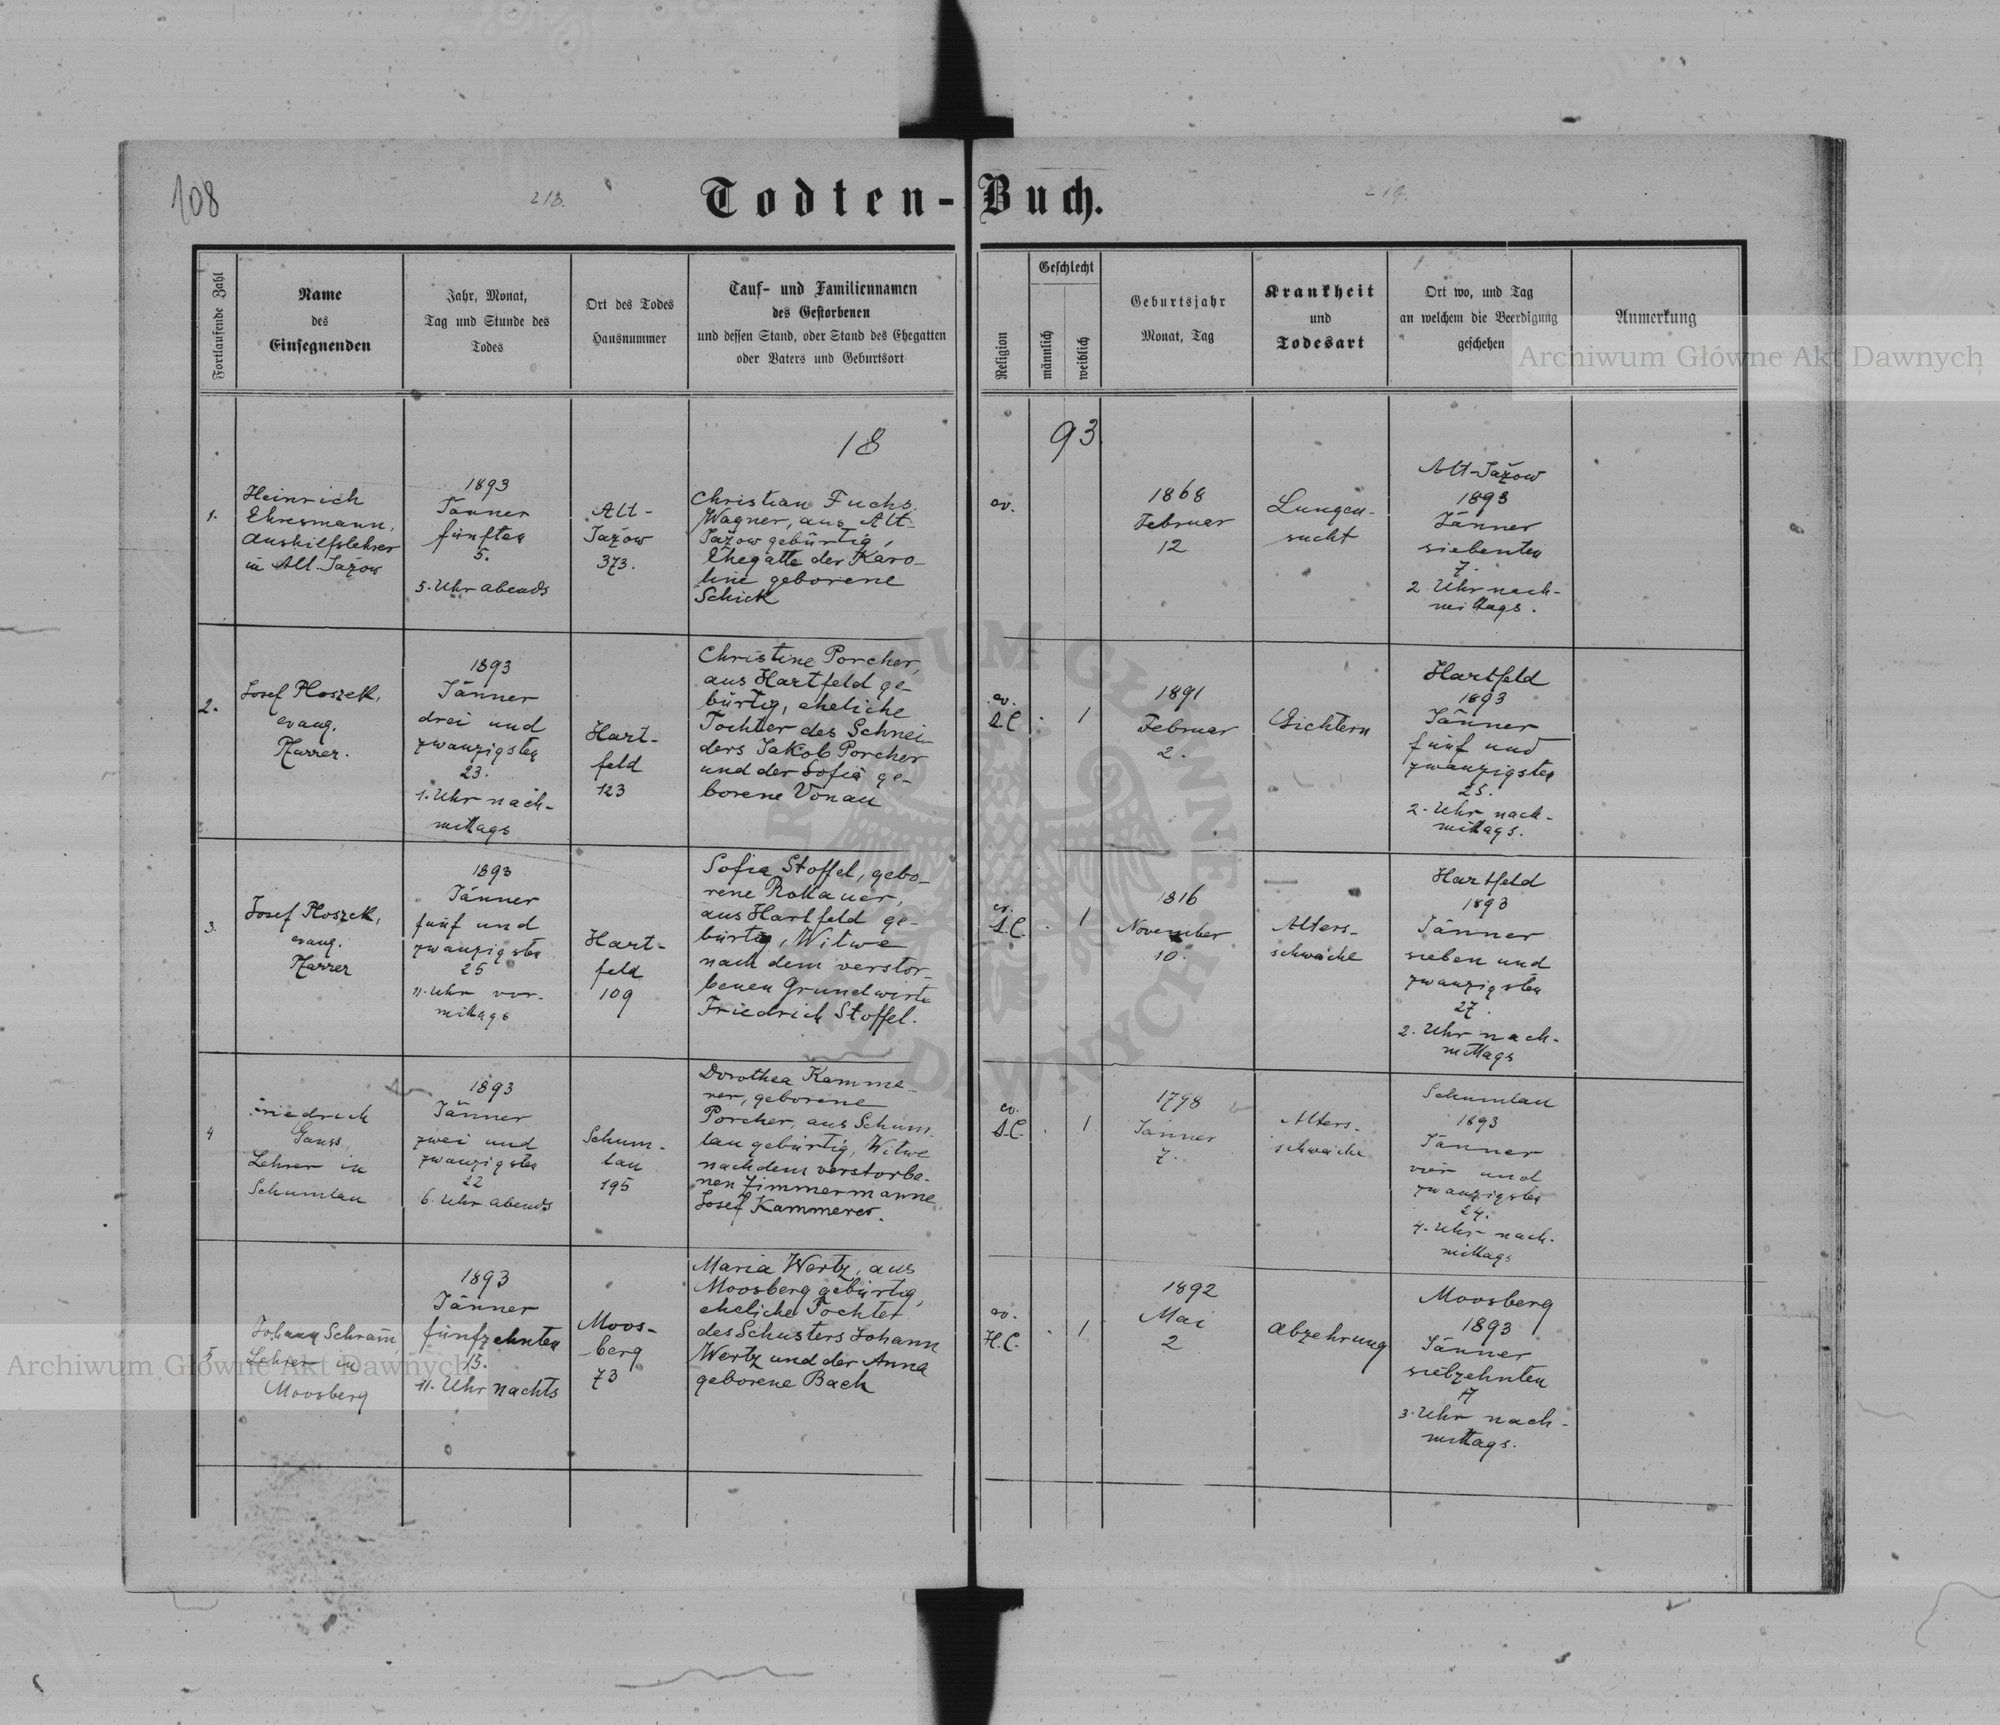 108
218.
Todten-Buch.
219.
Fortlaufende Zahl
Name
des
Einsegnenden
Jahr, Monat,
Tag und Stunde des
Todes
Ort des Todes
Hausnummer
Tauf- und Familiennamen
des Gestorbenen
und dessen Stand, oder Stand des Ehegatten
oder Vaters und Geburtsort
Religion
Geschlecht
männlich
weiblich
Geburtsjahr
Monat, Tag
Krankheit
und
Todesart
Ort wo, und Tag
an welchem die Beerdigung
geschehen
Anmerkung
1893
1.
Heinrich
Ehresmann,
Aushilfslehrer
in Alt-Jazow
1893
Jänner
fünften
5.
5. Uhr abends
Alt-
Jažow
373.
Christian Fuchs,
Wagner, aus Alt-
Jažow gebürtig,
Ehegatte der Karo-
line geborene
Schick
ev.
1868
Februar
12
Lungen-
sucht
Alt-Jažow
1893
Jänner
siebenten
7.
2. Uhr nach-
mittags.
2.
Josef Ploszek,
evang.
Pfarrer.
1893
Jänner
drei und
zwanzigsten
23.
1. Uhr nach-
mittags
Hart-
feld
123
Christine Porcher,
aus Hartfeld ge-
bürtig, eheliche
Tochter des Schnei-
ders Jakob Porcher
und der Sofia ge-
borene Vonau
ev.
A.C.
1
1891
Februar
2.
Gichtern
Hartfeld
1893
Jänner
fünf und
zwanzigsten
25.
2. Uhr nach-
mittags.
3.
Josef Ploszek,
evang.
Pfarrer
1893
Jänner
fünf und
zwanzigsten
25
11. Uhr vor-
mittags
Hart-
feld
109
Sofia Stoffel, gebo-
rene Rollauer,
aus Hartfeld ge-
bürtig, Witwe
nach dem verstor-
benen Grundwirte
Friedrich Stoffel.
ev.
A.C.
1
1816
November
10.
Alters-
schwäche
Hartfeld
1893
Jänner
sieben und
zwanzigsten
27.
2. Uhr nach-
mittags
4
Friedrich
Gauss,
Lehrer in
Schumlau
1893
Jänner
zwei und
zwanzigsten
22
6. Uhr abends
Schum-
lau
195
Dorothea Kamme-
rer, geborene
Porcher, aus Schum-
lau gebürtig, Witwe
nach dem verstorbe-
nen Zimmermanne
Josef Kammerer.
ev.
A.C.
1
1798
Jänner
7.
Alters-
schwäche
Schumlau
1893
Jänner
vier und
zwanzigsten
24.
4. Uhr nach-
mittags
5
Johann Schram,
Lehrer in
Moosberg
1893
Jänner
fünfzehnten
15.
11. Uhr nachts
Moos-
berg
73
Maria Wertz, aus
Moosberg gebürtig,
eheliche Tochter
des Schusters Johann
Wertz und der Anna
geborene Bach
ev.
H.C.
1
1892
Mai
2
Abzehrung
Moosberg
1893
Jänner
siebzehnten
17
3. Uhr nach-
mittags.
Archiwum Główne Akt Dawnych
Archiwum Główne Akt Dawnych